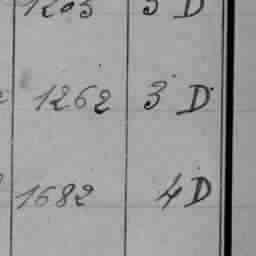 1203 3 D
1262 3 D
1682 4 D